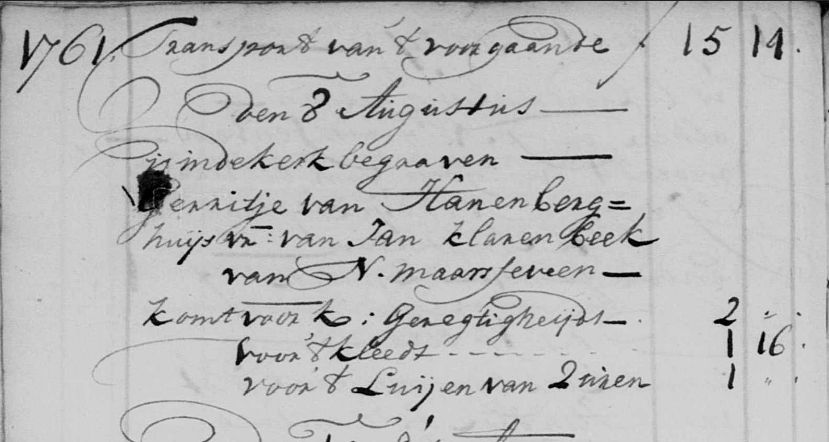 1761. Transport van 't voorgaande f 15 14.
den 8 Augustus —
is in de kerk begraaven —
Gerritje van Hanenberg=
huijs vr: van Jan klarenbeek
van N. maarsseveen —
komt voor k: Geregtigheijdt —. 2 „ .
voor 't kleedt - - - - - - 1 16 .
voor 't Luijen van 2 uiren 1 „ .